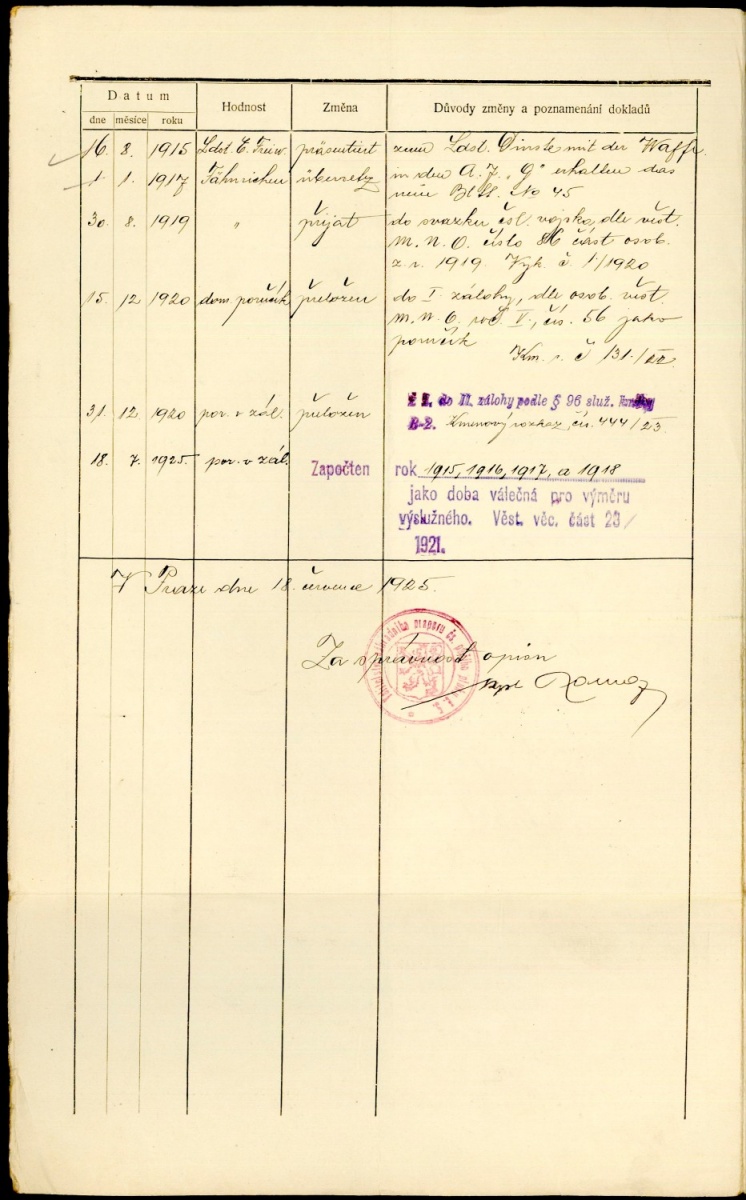 Datum
Hodnost
Změna
Důvody změny a poznamenání dokladů
dne měsíce roku
16. 8. 1915 Ldst. E. Freiw. präsentiert zum Ldst. Dinste mit der Waffe.
1. 1. 1917 Fähnrichen übersetzt in den A. J. "9" erhalten das
neue Bl. No 45
30. 8. 1919 " přijat do svazku čsl. vojska, dle věst.
M. N. O. číslo 86 část osob.
z. r. 1919. Vyh. č 1/1920
15. 12 1920 dom poručík přeložen do I. zálohy, dle osob. věst.
M. N. O. roč. V., čís. 56 jako
poručík
Km. r. č 131./
31. 12 1920 por. v zál. přeložen do II. zálohy podle § 96 služ.
B-2. Kmenový rozkaz čís. 444/23
18. 7. 1925. por. v zál. Započten rok 1915, 1916, 1917, a 1918
jako doba válečná pro výměru
výslužného. Věst. věc. část 23/
1921.
V Praze dne 18. července 1925.
Za správnost opisu